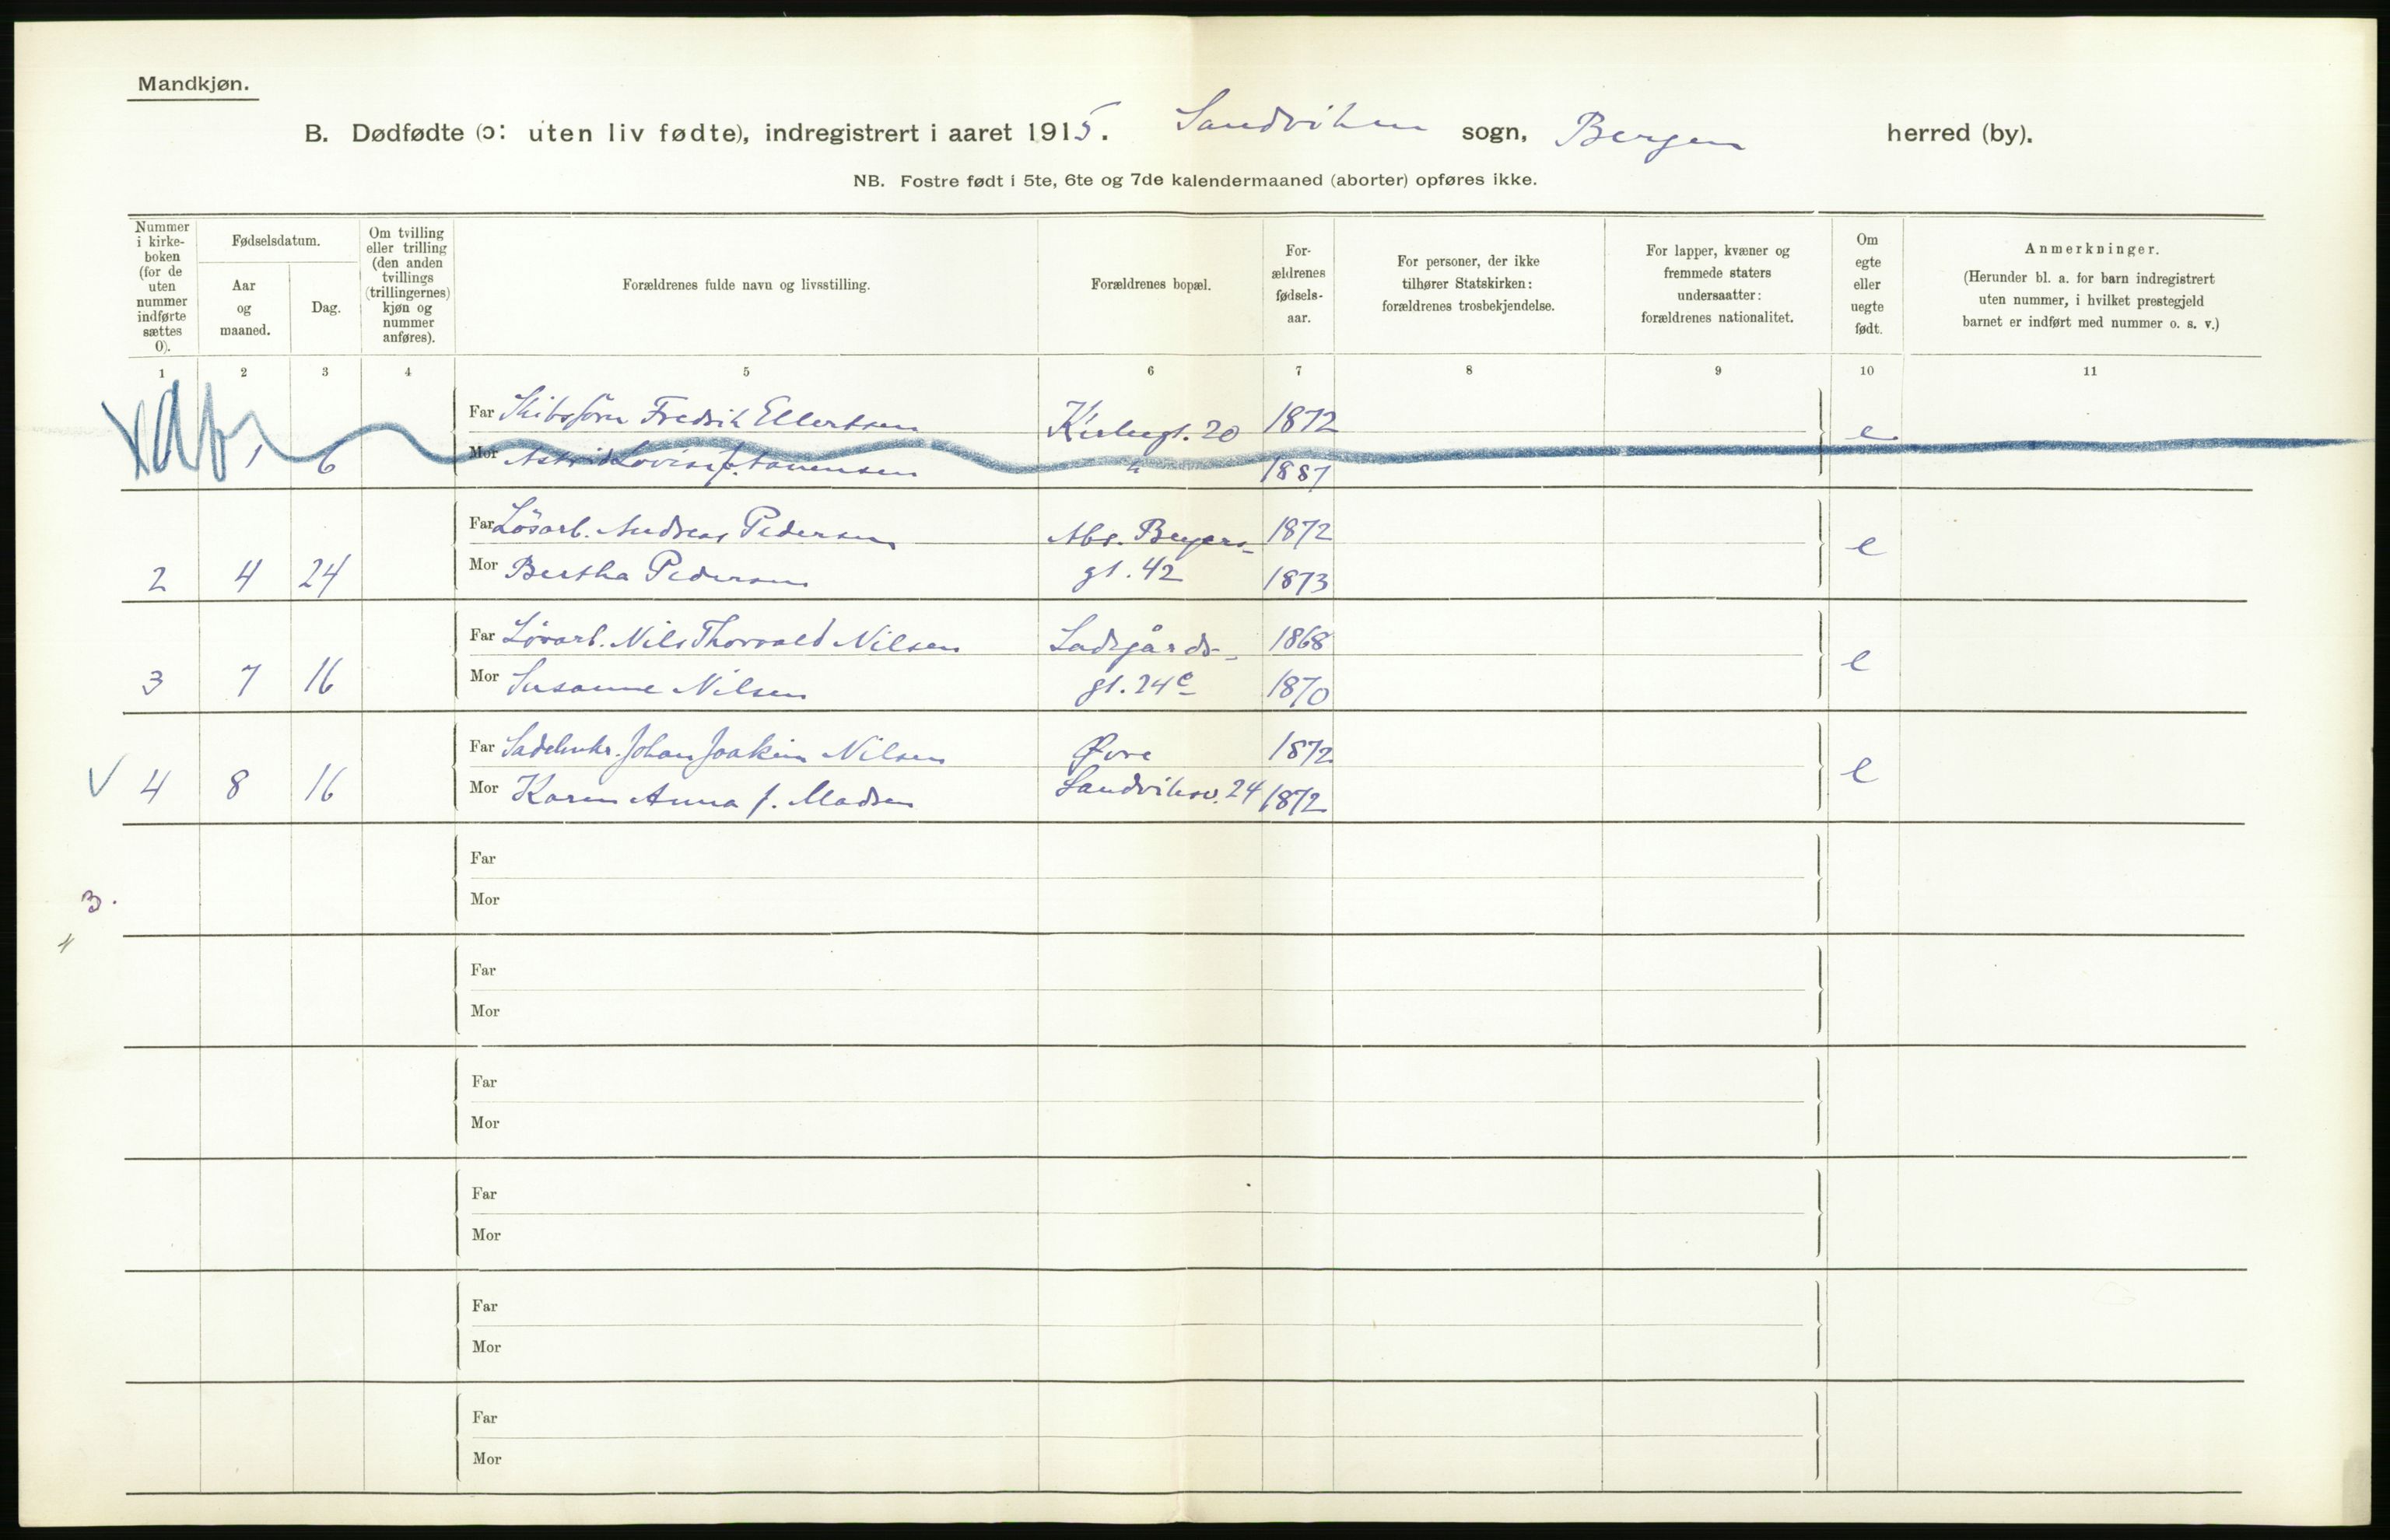 Mandkjøn.
B. Dødfødte (ɔ: uten liv fødte), indregistrert i aaret 1915. Sandviken sogn, Bergen herred (by).
NB. Fostre født i 5te, 6te og 7de kalendermaaned (aborter) opføres ikke.
Nummer i kirke-boken (for de uten nummer indførte sættes 0).
Fødselsdatum.
Aar og maaned.
Dag.
Om tvilling eller trilling (den anden tvillings (trillingernes) kjøn og nummer anføres).
Forældrenes fulde navn og livsstilling.
Forældrenes bopæl.
For-ældrenes fødsels-aar.
For personer, der ikke tilhører Statskirken: forældrenes trosbekjendelse.
For lapper, kvæner og fremmede staters undersaatter: forældrenes nationalitet.
Om egte eller uegte født.
Anmerkninger.
(Herunder bl. a. for barn indregistrert uten nummer, i hvilket prestegjeld barnet er indført med nummer o. s. v.)
1 2 3 4 5 6 7 8 9 10 11
Far Skibsfører Fredrik Ellertsen Kirkegt. 20 1872 e
1 6 Mor Astrid Lovise f. " 1887
Far Løsarb. Andreas Pedersen Abs. Beyers- 1872 e
2 4 24 Mor Bertha Pedersen gt. 42 1873
Far Løsarb. Nils Thorvald Nilsen Ladegårds- 1868 e
3 7 16 Mor Susanne Nilsen gt. 24c 1870
Far Sadelmkr. Johan Joakim Nilsen Øvre 1872 e
4 8 16 Mor Karen Anna f. Madsen Sandviksv. 24 1872
Far
3. Mor
Far
Mor
Far
Mor
Far
Mor
Far
Mor
Far
Mor